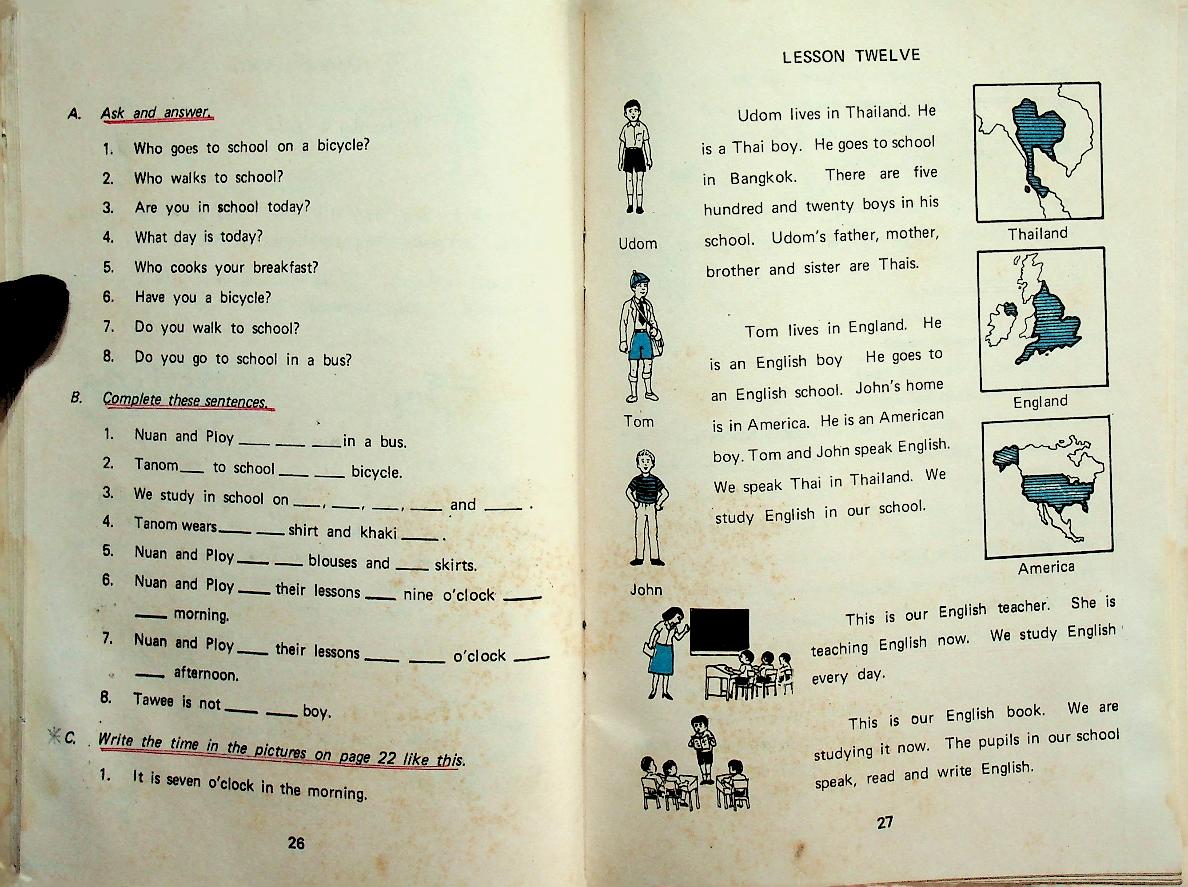 A. Ask and answer.
1. Who goes to school on a bicycle?
2. Who walks to school?
3. Are you in school today?
4. What day is today?
5. Who cooks your breakfast?
6. Have you a bicycle?
7. Do you walk to school?
8. Do you go to school in a bus?
B. Complete these sentences.
1. Nuan and Ploy ___ ___ ___ in a bus.
2. Tanom ___ to school ___ ___ bicycle.
3. We study in school on ___, ___, ___, ___ and ___ .
4. Tanom wears ___ ___ shirt and khaki ___ .
5. Nuan and Ploy ___ ___ blouses and ___ skirts.
6. Nuan and Ploy ___ their lessons ___ nine o'clock ___
___ morning.
7. Nuan and Ploy ___ their lessons ___ ___ o'clock ___
___ afternoon.
8. Tawee is not ___ ___ boy.
C. Write the time in the pictures on page 22 like this.
1. It is seven o'clock in the morning.
26
LESSON TWELVE
Udom lives in Thailand. He
is a Thai boy. He goes to school
in Bangkok. There are five
hundred and twenty boys in his
school. Udom's father, mother,
brother and sister are Thais.
Udom
Thailand
Tom lives in England. He
is an English boy He goes to
an English school. John's home
is in America. He is an American
boy. Tom and John speak English.
We speak Thai in Thailand. We
study English in our school.
Tom
England
John
America
This is our English teacher. She is
teaching English now. We study English
every day.
This is our English book. We are
studying it now. The pupils in our school
speak, read and write English.
27